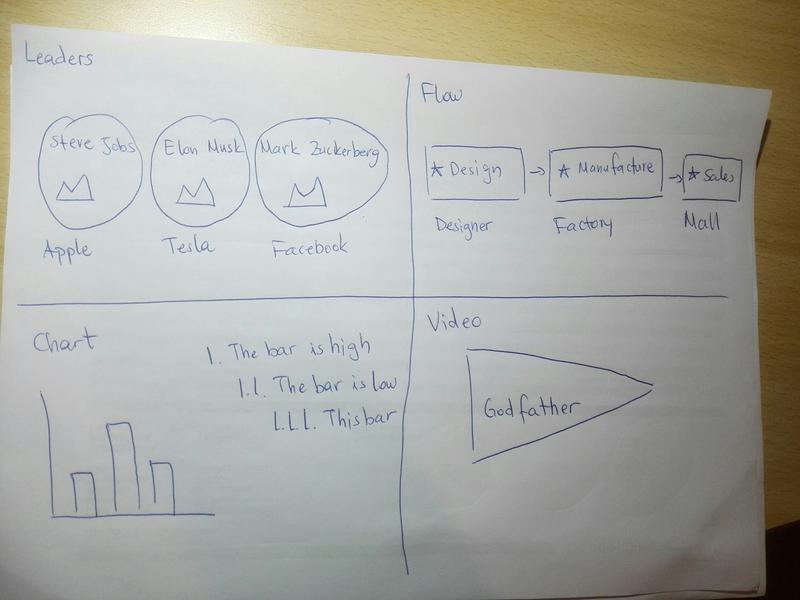 Leaders
Steve Jobs
Elon Musk
Mark Zuckerberg
Apple
Tesla
Facebook
Flow
* Design → * Manufacture → * Sales
Designer
Factory
Mall
Chart
1. The bar is high
1.1. The bar is low
1.1.1. This bar
Video
Godfather